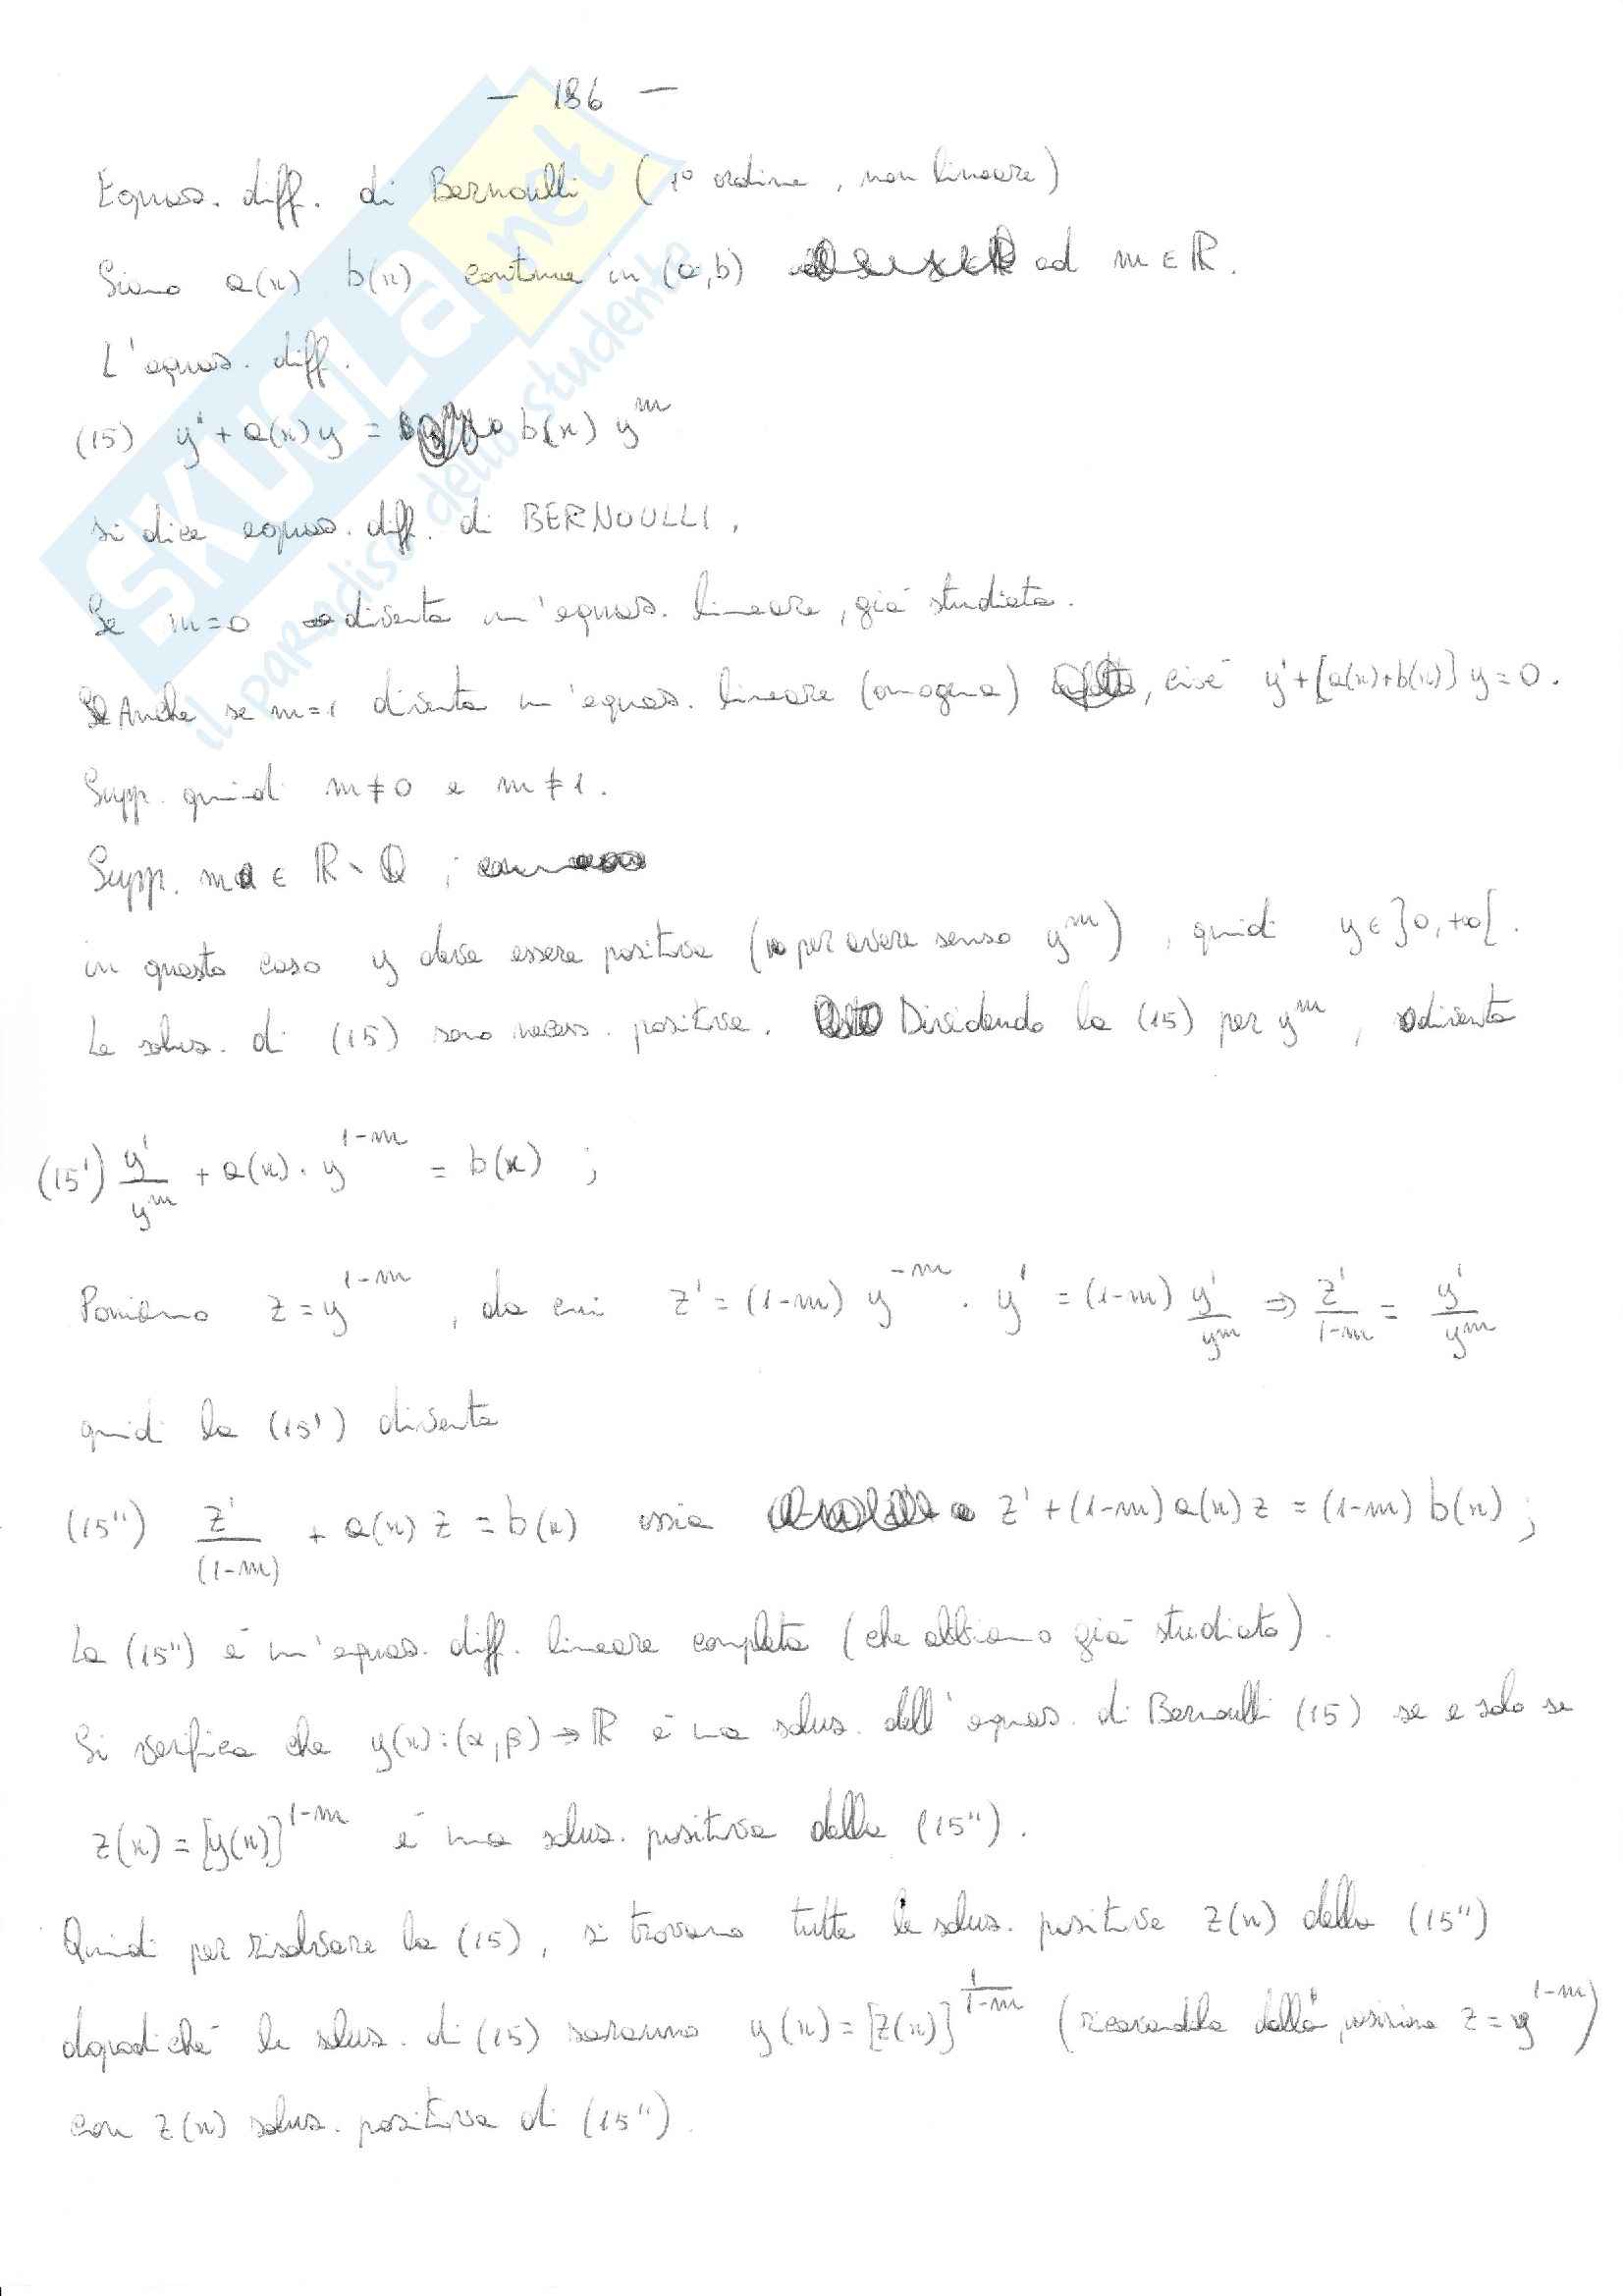 — 186 —
Equaz. diff. di Bernoulli (1° ordine, non lineare)
Siano a(x) b(x) continue in (a,b) ed m ∈ ℝ.
L'equaz. diff.
(15) y' + a(x) y = b(x) y^m
si dice equaz. diff. di BERNOULLI.
Se m=0 diventa un'equaz. lineare, già studiata.
Anche se m=1 diventa un'equaz. lineare (omogenea), cioè y' + [a(x)+b(x)] y = 0.
Supp. quindi m ≠ 0 e m ≠ 1.
Supp. m ∈ ℝ \ ℚ ;
in questo caso y deve essere positiva (per avere senso y^m), quindi y ∈ ]0,+∞[.
Le soluz. di (15) sono necess. positive. Dividendo la (15) per y^m, diventa
(15') y'/y^m + a(x) · y^{1-m} = b(x) ;
Poniamo z = y^{1-m}, da cui z' = (1-m) y^{-m} · y' = (1-m) y'/y^m ⇒ z'/(1-m) = y'/y^m
quindi la (15') diventa
(15'') z'/(1-m) + a(x) z = b(x) ossia z' + (1-m) a(x) z = (1-m) b(x) ;
La (15'') è un'equaz. diff. lineare completa (che abbiamo già studiato).
Si verifica che y(x): (α,β) → ℝ è una soluz. dell'equaz. di Bernoulli (15) se e solo se
z(x) = [y(x)]^{1-m} è una soluz. positiva della (15'').
Quindi per risolvere la (15), si trovano tutte le soluz. positive z(x) della (15'')
dopodiché le soluz. di (15) saranno y(x) = [z(x)]^{1/(1-m)} (ricavandola dalla posizione z = y^{1-m})
con z(x) soluz. positiva di (15'').
SKUOLA.net
il paradiso dello studente